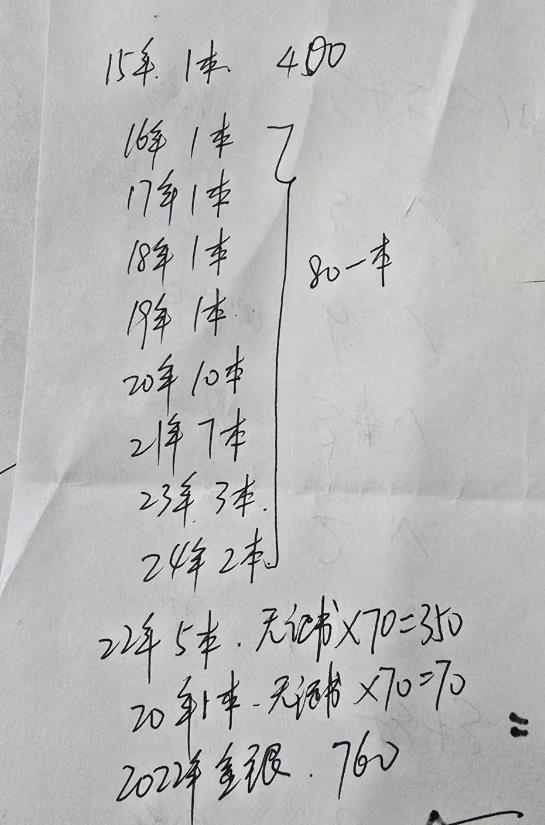 15年 1本 400
16年 1本
17年 1本
18年 1本
80一本
19年 1本
20年 10本
21年 7本
23年 3本
24年 2本
22年 5本.无证书×70=350
20年1本-无证书×70=70
2022年金银.760